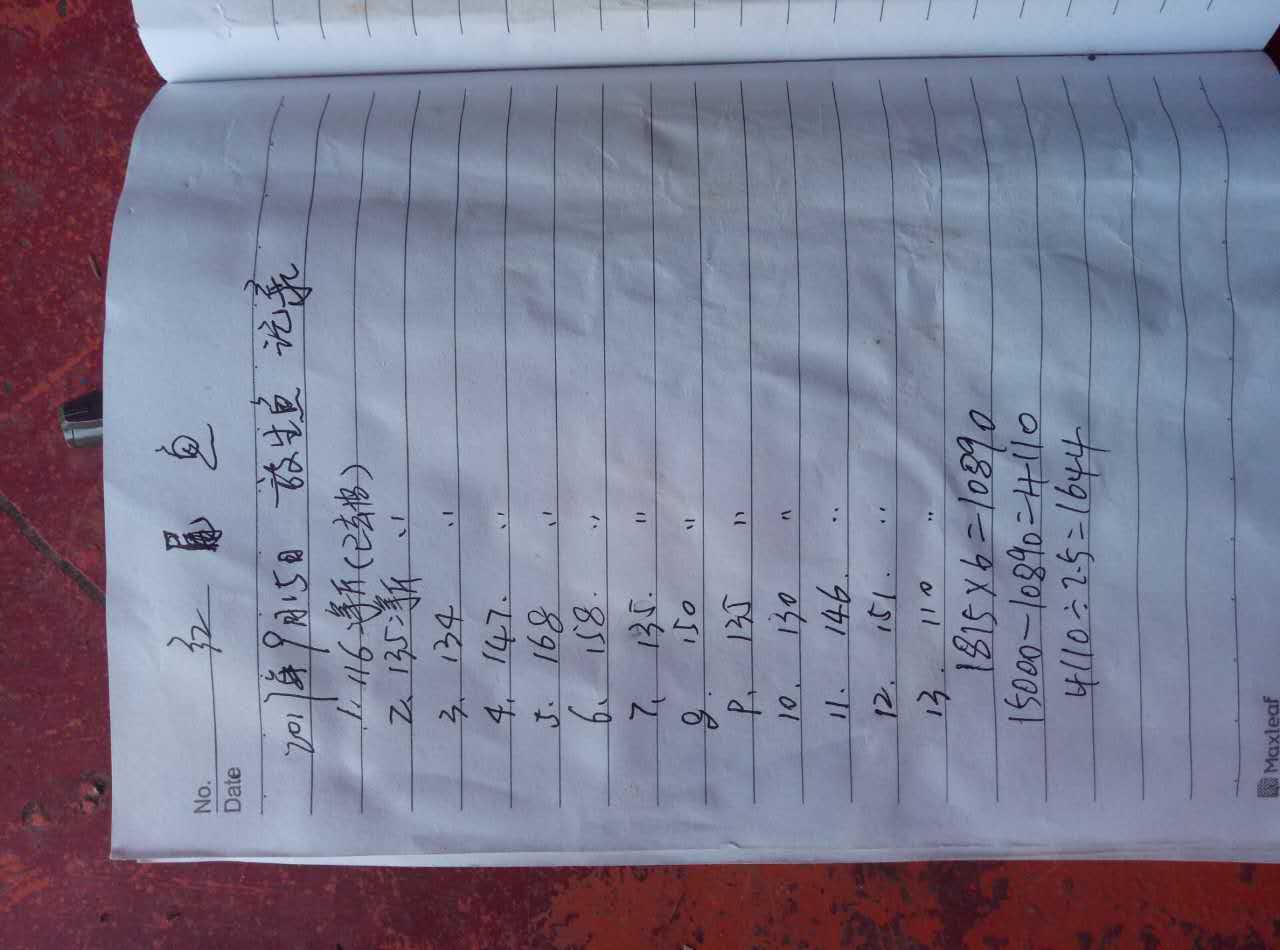 No.
Date
红 鱼
2017年9月15日 放生鱼 记录
1. 116斤(已去桶)
2. 135斤 〃
3. 134 〃
4. 147. 〃
5. 168 〃
6. 158. 〃
7. 135. 〃
8. 150 〃
9. 135 〃
10. 130 〃
11. 146. 〃
12. 151. 〃
13. 110 〃
1815×6=10890
15000-10890=4110
4110÷2.5=1644
Maxleaf